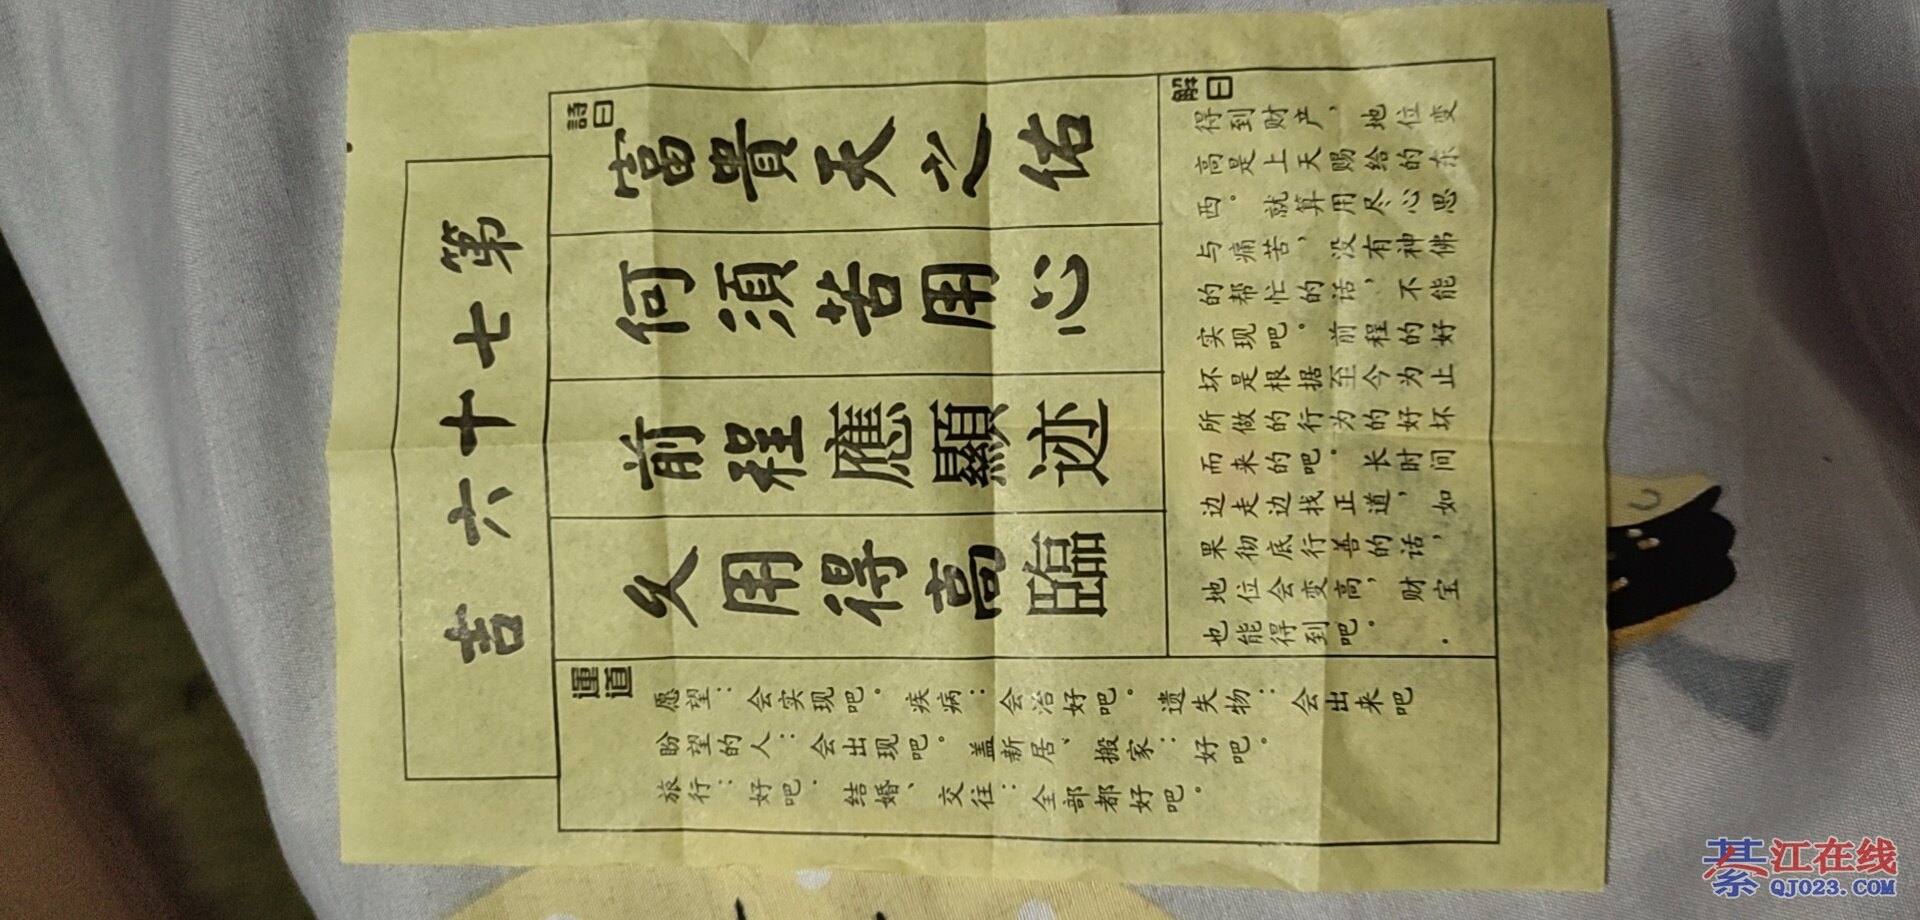 第七十六吉
詩曰
富貴天之佑
何須苦用心
前程應顯迹
久用得高臨
解曰
得到财产，地位变
高是上天赐给的东
西。就算用尽心思
与痛苦，没有神佛
的帮忙的话，不能
实现吧。前程的好
坏是根据至今为止
所做的行为的好坏
而来的吧。长时间
边走边找正道，如
果彻底行善的话，
地位会变高，财宝
也能得到吧。
運道
愿望：会实现吧。疾病：会治好吧。遗失物：会出来吧
盼望的人：会出现吧。盖新居、搬家：好吧。
旅行：好吧。结婚、交往：全部都好吧。
綦江在线
QJ023.COM